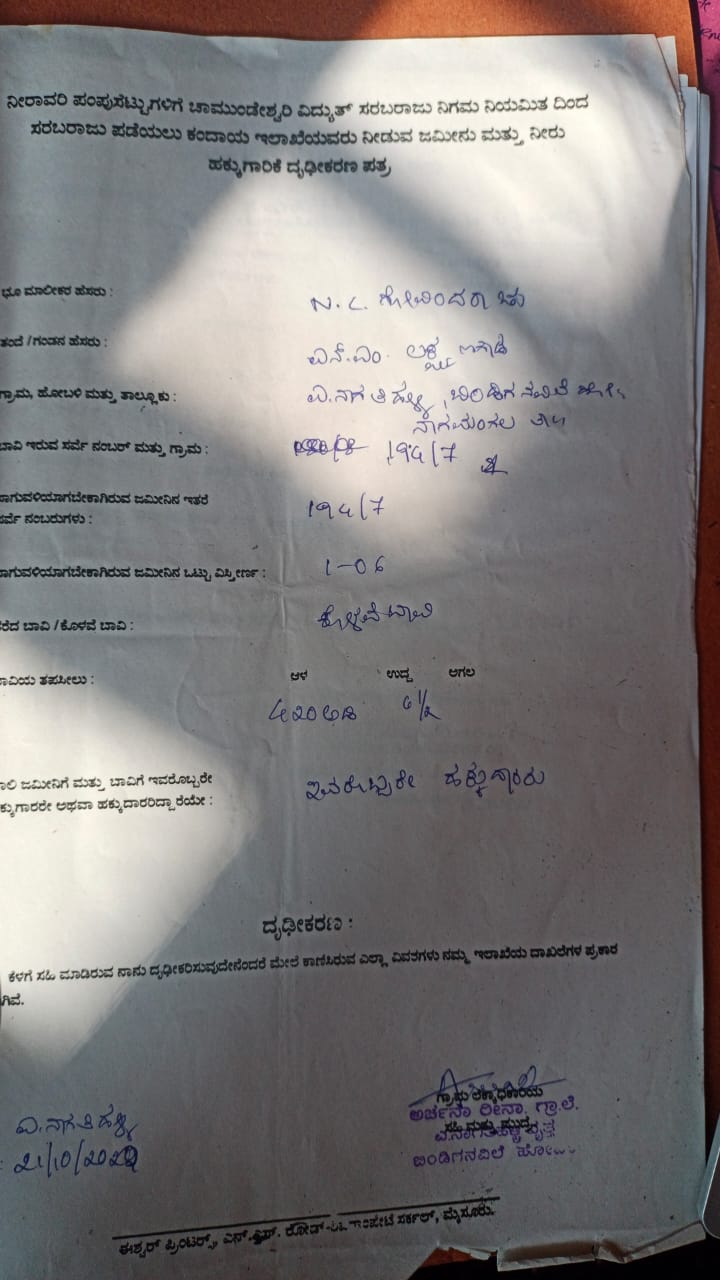 ನೀರಾವರಿ ಪಂಪುಸೆಟ್ಟುಗಳಿಗೆ ಚಾಮುಂಡೇಶ್ವರಿ ವಿದ್ಯುತ್ ಸರಬರಾಜು ನಿಗಮ ನಿಯಮಿತ ದಿಂದ
ಸರಬರಾಜು ಪಡೆಯಲು ಕಂದಾಯ ಇಲಾಖೆಯವರು ನೀಡುವ ಜಮೀನು ಮತ್ತು ನೀರು
ಹಕ್ಕುಗಾರಿಕೆ ದೃಢೀಕರಣ ಪತ್ರ
ಭೂ ಮಾಲೀಕರ ಹೆಸರು : N. L. ಗೋವಿಂದರಾಜು
ತಂದೆ /ಗಂಡನ ಹೆಸರು : ಎನ್.ಎಂ.
ಗ್ರಾಮ, ಹೋಬಳಿ ಮತ್ತು ತಾಲ್ಲೂಕು : ಎ.ನಾಗತಿಹಳ್ಳಿ, ಬಿಂಡಿಗನವಿಲೆ ಹೋ
ನಾಗಮಂಗಲ ತಾ॥
ಬಾವಿ ಇರುವ ಸರ್ವೆ ನಂಬರ್ ಮತ್ತು ಗ್ರಾಮ : 194/7
ಸಾಗುವಳಿಯಾಗಬೇಕಾಗಿರುವ ಜಮೀನಿನ ಇತರೆ
ಸರ್ವೆ ನಂಬರುಗಳು : 194/7
ಸಾಗುವಳಿಯಾಗಬೇಕಾಗಿರುವ ಜಮೀನಿನ ಒಟ್ಟು ವಿಸ್ತೀರ್ಣ : 1-06
ತೆರೆದ ಬಾವಿ /ಕೊಳವೆ ಬಾವಿ : ಕೊಳವೆಬಾವಿ
ಬಾವಿಯ ತಪಸೀಲು : ಆಳ ಉದ್ದ ಅಗಲ
420 ಅಡಿ 6 ½
ಜಮೀನಿಗೆ ಮತ್ತು ಬಾವಿಗೆ ಇವರೊಬ್ಬರೇ
ಹಕ್ಕುಗಾರರೇ ಅಥವಾ ಹಕ್ಕುದಾರರಿದ್ದಾರೆಯೇ : ಇವರೊಬ್ಬರೇ ಹಕ್ಕುದಾರರು
ದೃಢೀಕರಣ :
ಕೆಳಗೆ ಸಹಿ ಮಾಡಿರುವ ನಾನು ದೃಢೀಕರಿಸುವುದೇನೆಂದರೆ ಮೇಲೆ ಕಾಣಿಸಿರುವ ಎಲ್ಲಾ ವಿವರಗಳು ನಮ್ಮ ಇಲಾಖೆಯ ದಾಖಲೆಗಳ ಪ್ರಕಾರ
ಗ್ರಾಮ ಲೆಕ್ಕಾಧಿಕಾರಿಯ
ಅರ್ಚನಾ ರೀನಾ. ಗ್ರಾ.ಲೆ.
ಎ.ನಾಗತಿಹಳ್ಳಿ ಸಹಿ ಮತ್ತು ಮುದ್ರೆ ವೃತ್ತ
ಎ.ನಾಗತಿಹಳ್ಳಿ
ಬಿಂಡಿಗನವಿಲೆ
21/10/2022
ಈಶ್ವರ್ ಪ್ರಿಂಟರ್ಸ್, ಎನ್.ಎಸ್. ರೋಡ್ ಸರ್ಕಲ್, ಮೈಸೂರು.